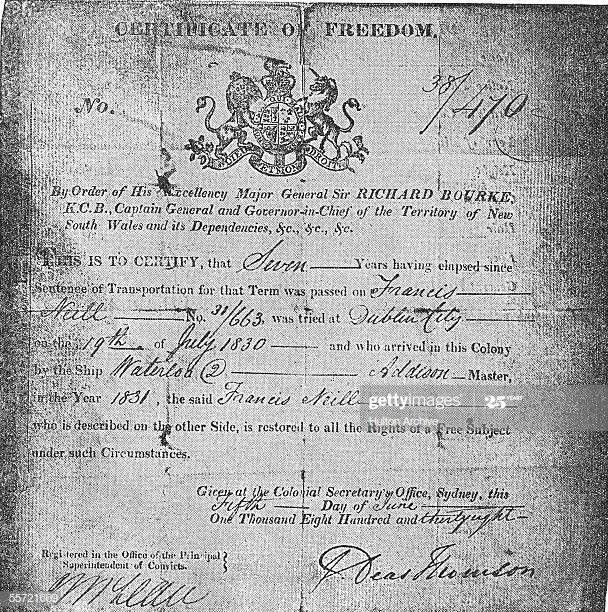 CERTIFICATE OF FREEDOM.
No. 38/470
By Order of His Excellency Major General Sir RICHARD BOURKE,
K.C.B., Captain General and Governor-in-Chief of the Territory of New
South Wales and its Dependencies, &c., &c., &c.
THIS IS TO CERTIFY, that Seven Years having elapsed since
Sentence of Transportation for that Term was passed on Francis
Neill No. 31/663, was tried at Dublin City
on the 19th of July 1830 and who arrived in this Colony
by the Ship Waterloo (2) Addison Master,
in the Year 1831, the said Francis Neill
who is described on the other Side, is restored to all the Rights of a Free Subject
under such Circumstances.
Given at the Colonial Secretary's Office, Sydney, this
Fifth Day of June
One Thousand Eight Hundred and thirty eight
Registered in the Office of the Principal
Superintendent of Convicts.
E Deas Thomson
gettyimages